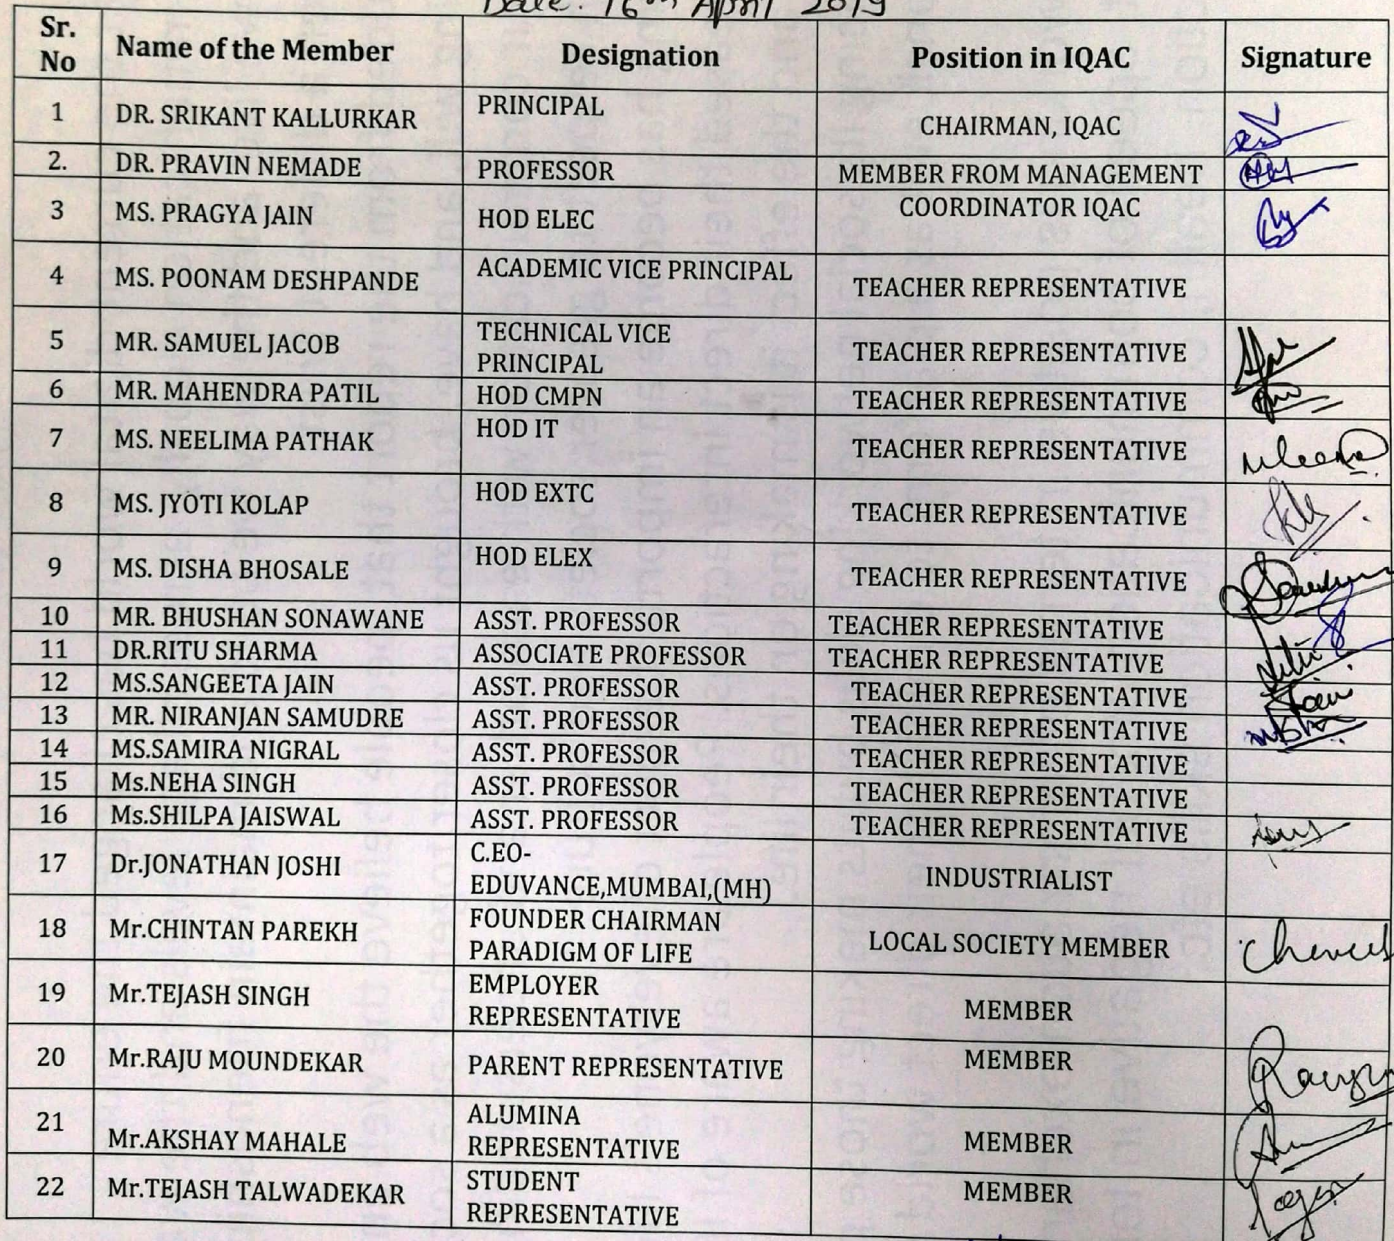 Date: 16th April 2019
Sr. No | Name of the Member | Designation | Position in IQAC | Signature
1 | DR. SRIKANT KALLURKAR | PRINCIPAL | CHAIRMAN, IQAC
2. | DR. PRAVIN NEMADE | PROFESSOR | MEMBER FROM MANAGEMENT
3 | MS. PRAGYA JAIN | HOD ELEC | COORDINATOR IQAC
4 | MS. POONAM DESHPANDE | ACADEMIC VICE PRINCIPAL | TEACHER REPRESENTATIVE
5 | MR. SAMUEL JACOB | TECHNICAL VICE PRINCIPAL | TEACHER REPRESENTATIVE
6 | MR. MAHENDRA PATIL | HOD CMPN | TEACHER REPRESENTATIVE
7 | MS. NEELIMA PATHAK | HOD IT | TEACHER REPRESENTATIVE
8 | MS. JYOTI KOLAP | HOD EXTC | TEACHER REPRESENTATIVE
9 | MS. DISHA BHOSALE | HOD ELEX | TEACHER REPRESENTATIVE
10 | MR. BHUSHAN SONAWANE | ASST. PROFESSOR | TEACHER REPRESENTATIVE
11 | DR.RITU SHARMA | ASSOCIATE PROFESSOR | TEACHER REPRESENTATIVE
12 | MS.SANGEETA JAIN | ASST. PROFESSOR | TEACHER REPRESENTATIVE
13 | MR. NIRANJAN SAMUDRE | ASST. PROFESSOR | TEACHER REPRESENTATIVE
14 | MS.SAMIRA NIGRAL | ASST. PROFESSOR | TEACHER REPRESENTATIVE
15 | Ms.NEHA SINGH | ASST. PROFESSOR | TEACHER REPRESENTATIVE
16 | Ms.SHILPA JAISWAL | ASST. PROFESSOR | TEACHER REPRESENTATIVE
17 | Dr.JONATHAN JOSHI | C.EO- EDUVANCE,MUMBAI,(MH) | INDUSTRIALIST
18 | Mr.CHINTAN PAREKH | FOUNDER CHAIRMAN PARADIGM OF LIFE | LOCAL SOCIETY MEMBER
19 | Mr.TEJASH SINGH | EMPLOYER REPRESENTATIVE | MEMBER
20 | Mr.RAJU MOUNDEKAR | PARENT REPRESENTATIVE | MEMBER
21 | Mr.AKSHAY MAHALE | ALUMINA REPRESENTATIVE | MEMBER
22 | Mr.TEJASH TALWADEKAR | STUDENT REPRESENTATIVE | MEMBER